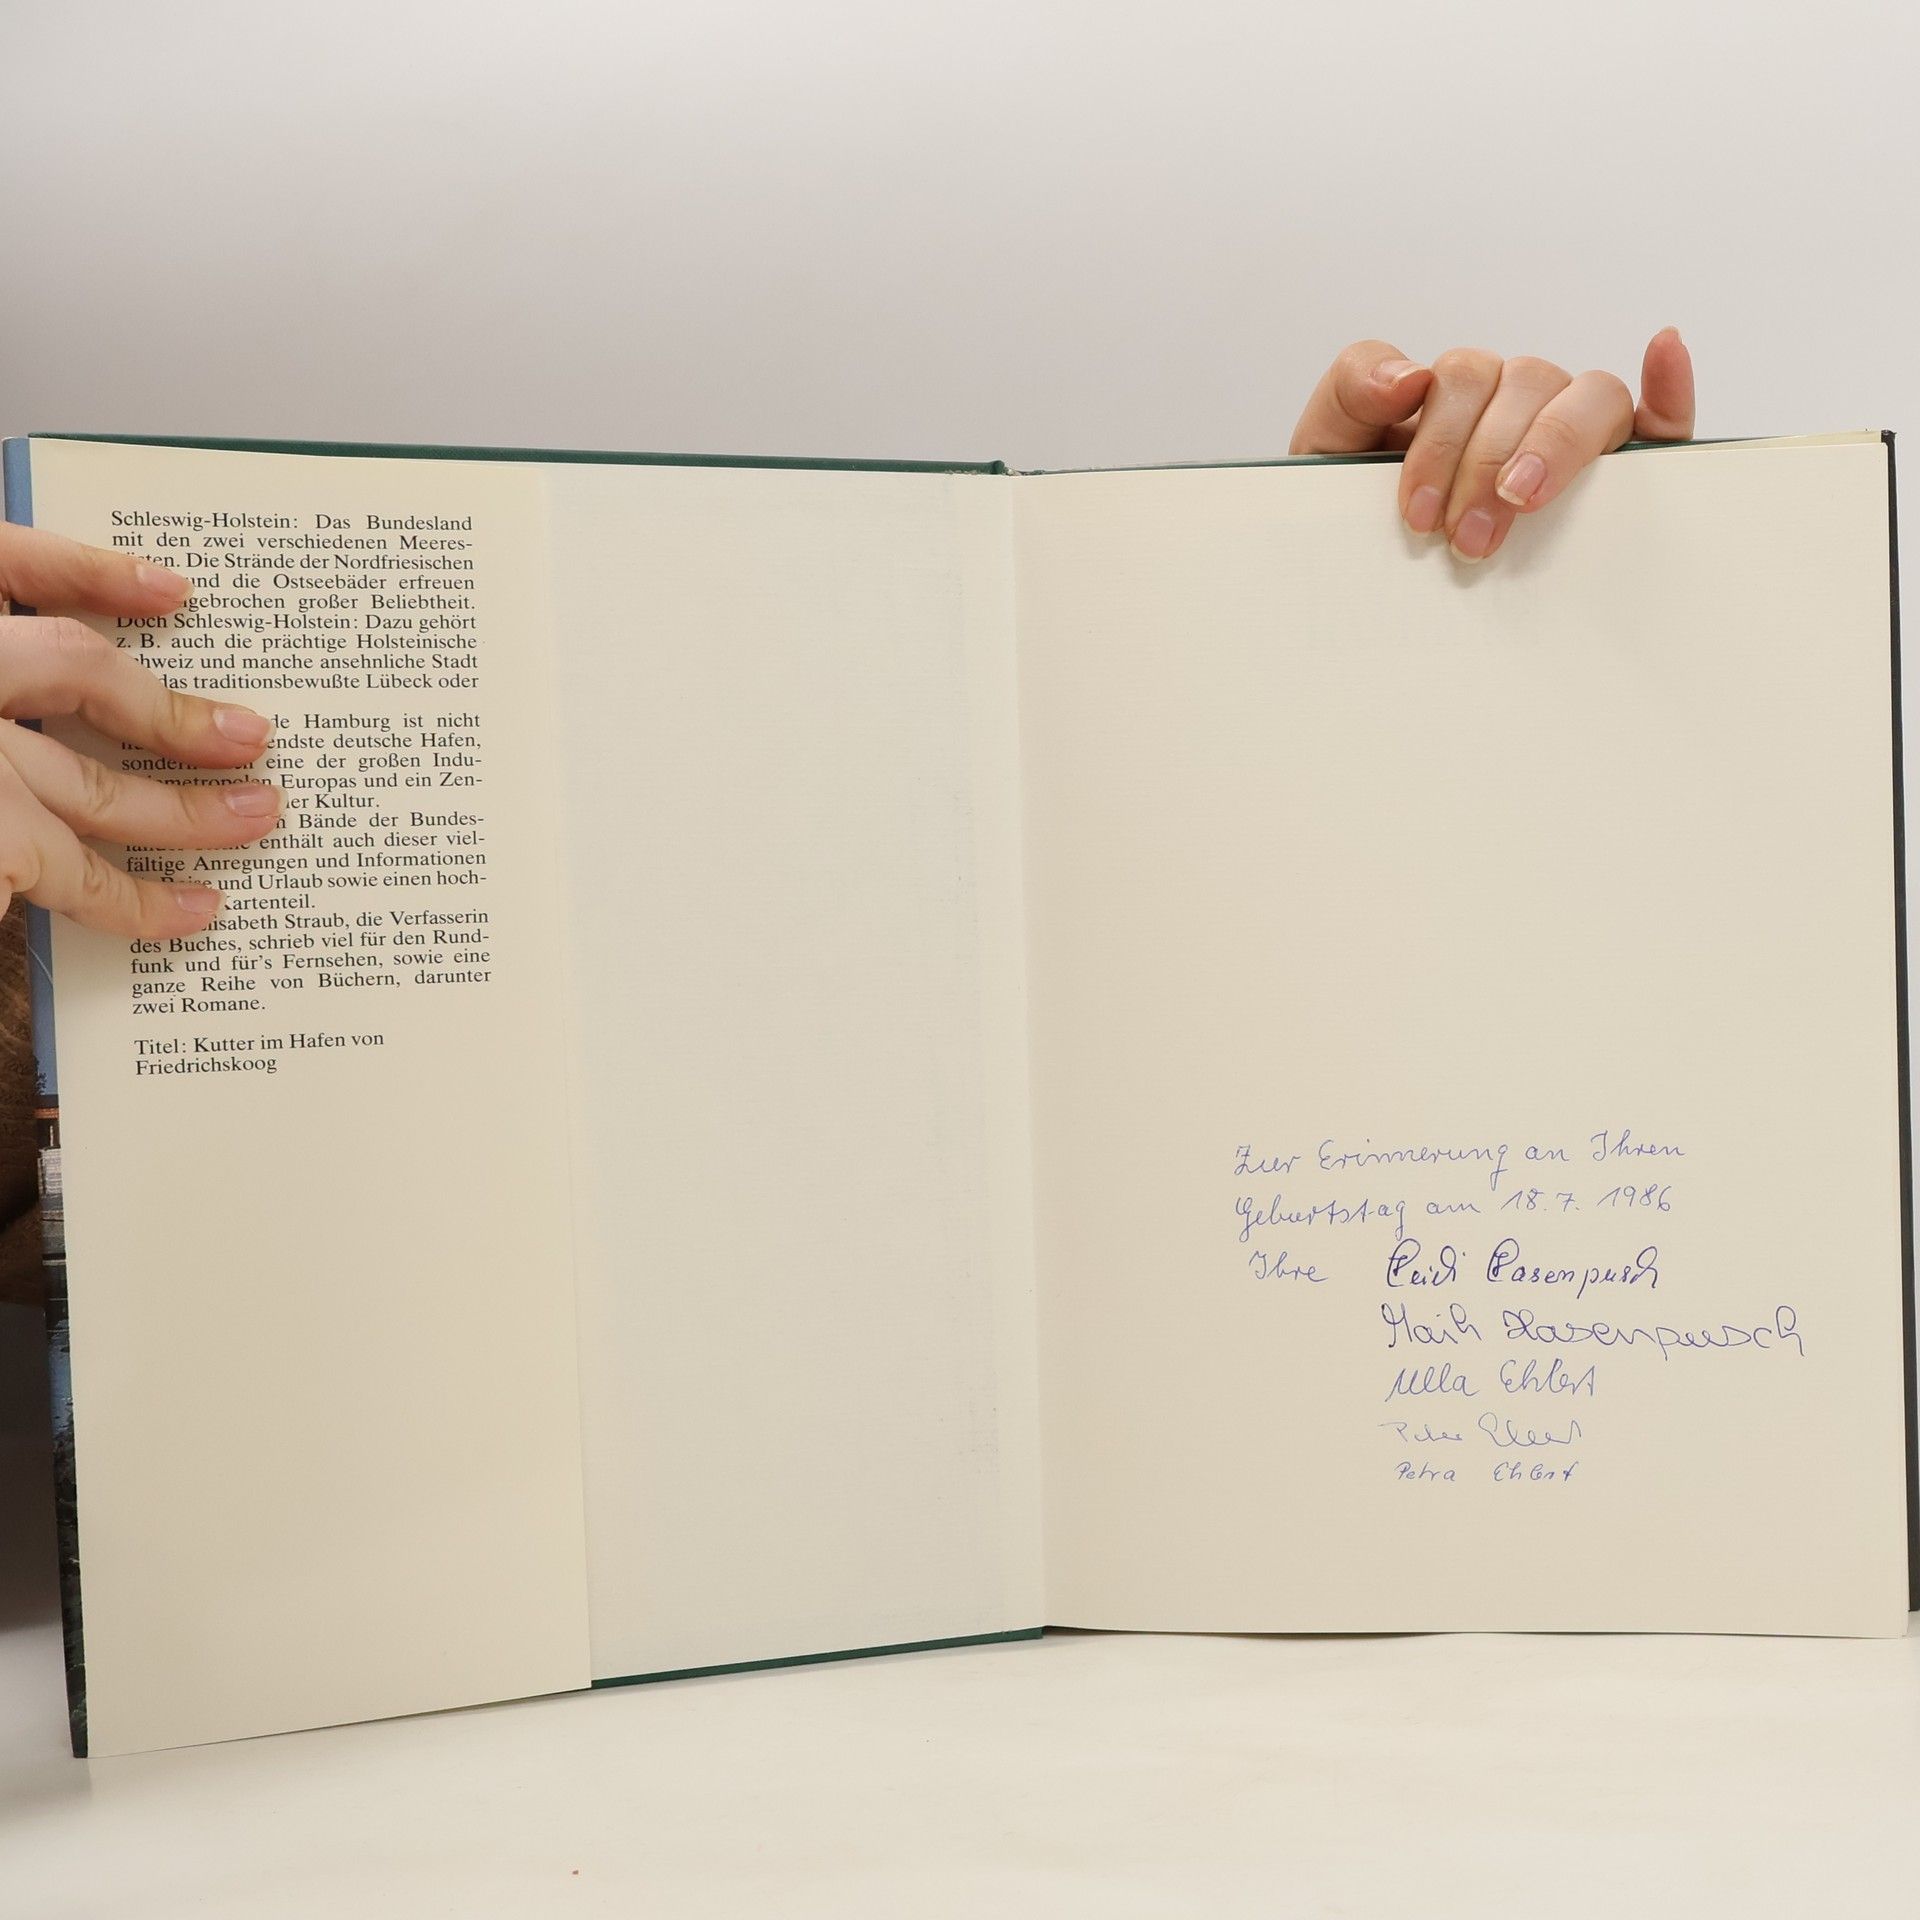 Schleswig-Holstein: Das Bundesland
mit den zwei verschiedenen Meeres-
Die Strände der Nordfriesischen
und die Ostseebäder erfreuen
großer Beliebtheit.
Doch Schleswig-Holstein: Dazu gehört
z. B. auch die prächtige Holsteinische
und manche ansehnliche Stadt
das traditionsbewußte Lübeck oder
Hamburg ist nicht
deutsche Hafen,
eine der großen Indu-
Europas und ein Zen-
Kultur.
Bände der Bundes-
enthält auch dieser viel-
fältige Anregungen und Informationen
und Urlaub sowie einen hoch-
Straub, die Verfasserin
des Buches, schrieb viel für den Rund-
funk und für's Fernsehen, sowie eine
ganze Reihe von Büchern, darunter
zwei Romane.
Titel: Kutter im Hafen von
Friedrichskoog
Zur Erinnerung an Ihren
Geburtstag am 18.7. 1986
Ihre Heidi Hasenpusch
Maik Hasenpusch
Ulla Ehlert
Peter Ehlert
Petra Ehlert